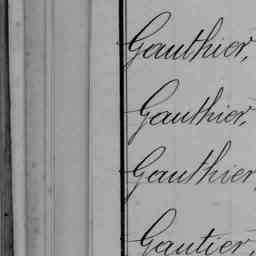 Gauthier,
Gauthier,
Gauthier,
Gautier,